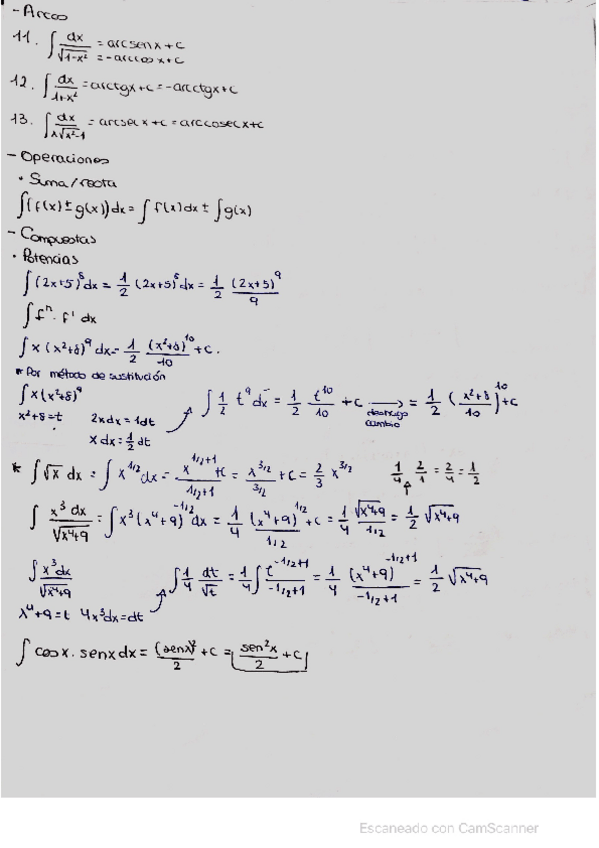 - Arcos
11. ∫ dx/√(1-x²) = arcsenx + c = -arccosx + c
12. ∫ dx/(1+x²) = arctgx + c = -arcctgx + c
13. ∫ dx/(x√(x²-1)) = arcsecx + c = arccosecx + c
- Operaciones
• Suma/resta
∫(f(x) ± g(x))dx = ∫f(x)dx ± ∫g(x)
- Compuestas
• Potencias
∫(2x+5)⁸dx = 1/2 (2x+5)⁸dx = 1/2 (2x+5)⁹/9
∫fⁿ · f' dx
∫x(x²+8)⁹dx = 1/2 (x²+8)¹⁰/10 + c.
* Por método de sustitución
∫x(x²+8)⁹
x²+8=t 2xdx = 1dt
xdx = 1/2 dt
∫ 1/2 t⁹dx = 1/2 t¹⁰/10 + c → deshago cambio = 1/2 (x²+8/10)¹⁰ + c
* ∫√x dx = ∫x^(1/2)dx = x^(1/2+1)/(1/2+1) + c = x^(3/2)/(3/2) + c = 2/3 x^(3/2) 1/4 2/1 = 2/4 = 1/2
∫ x³dx/√(x⁴+9) = ∫x³(x⁴+9)^(-1/2)dx = 1/4 (x⁴+9)^(1/2)/(1/2) + c = 1/4 √(x⁴+9)/(1/2) = 1/2 √(x⁴+9)
∫ x³dx/√(x⁴+9)
x⁴+9=t 4x³dx=dt
∫ 1/4 dt/√t = 1/4 ∫ t^(-1/2+1)/(-1/2+1) = 1/4 (x⁴+9)^(-1/2+1)/(-1/2+1) = 1/2 √(x⁴+9)
∫cosx · senxdx = (senx)²/2 + c = sen²x/2 + c
Escaneado con CamScanner